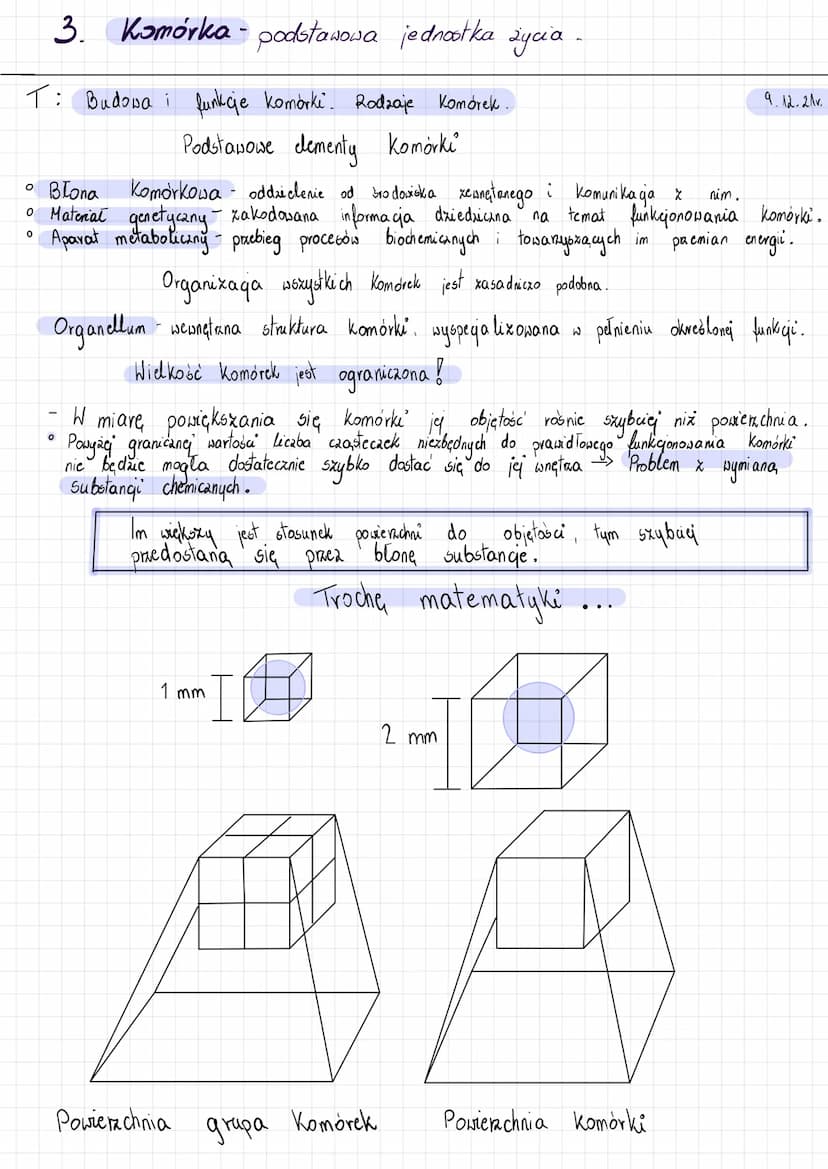 3. Komórka - podstawowa jednostka życia.
T: Budowa i funkcje komórki. Rodzaje komórek. 9.12.21r.
Podstawowe elementy komórki
° Błona komórkowa - oddzielenie od środowiska zewnętrznego i komunikacja z nim.
° Materiał genetyczny - zakodowana informacja dziedziczna na temat funkcjonowania komórki.
° Aparat metaboliczny - przebieg procesów biochemicznych i towarzyszących im przemian energii.
Organizacja wszystkich komórek jest zasadniczo podobna.
Organellum - wewnętrzna struktura komórki, wyspecjalizowana w pełnieniu określonej funkcji.
Wielkość komórek jest ograniczona!
- W miarę powiększania się komórki jej objętość rośnie szybciej niż powierzchnia.
° Powyżej granicznej wartości liczba cząsteczek niezbędnych do prawidłowego funkcjonowania komórki
nie będzie mogła dostatecznie szybko dostać się do jej wnętrza → Problem z wymianą
substancji chemicznych.
Im większy jest stosunek powierzchni do objętości, tym szybciej
przedostaną się przez błonę substancje.
Trochę matematyki ...
1 mm
2 mm
Powierzchnia grupa komórek Powierzchnia komórki